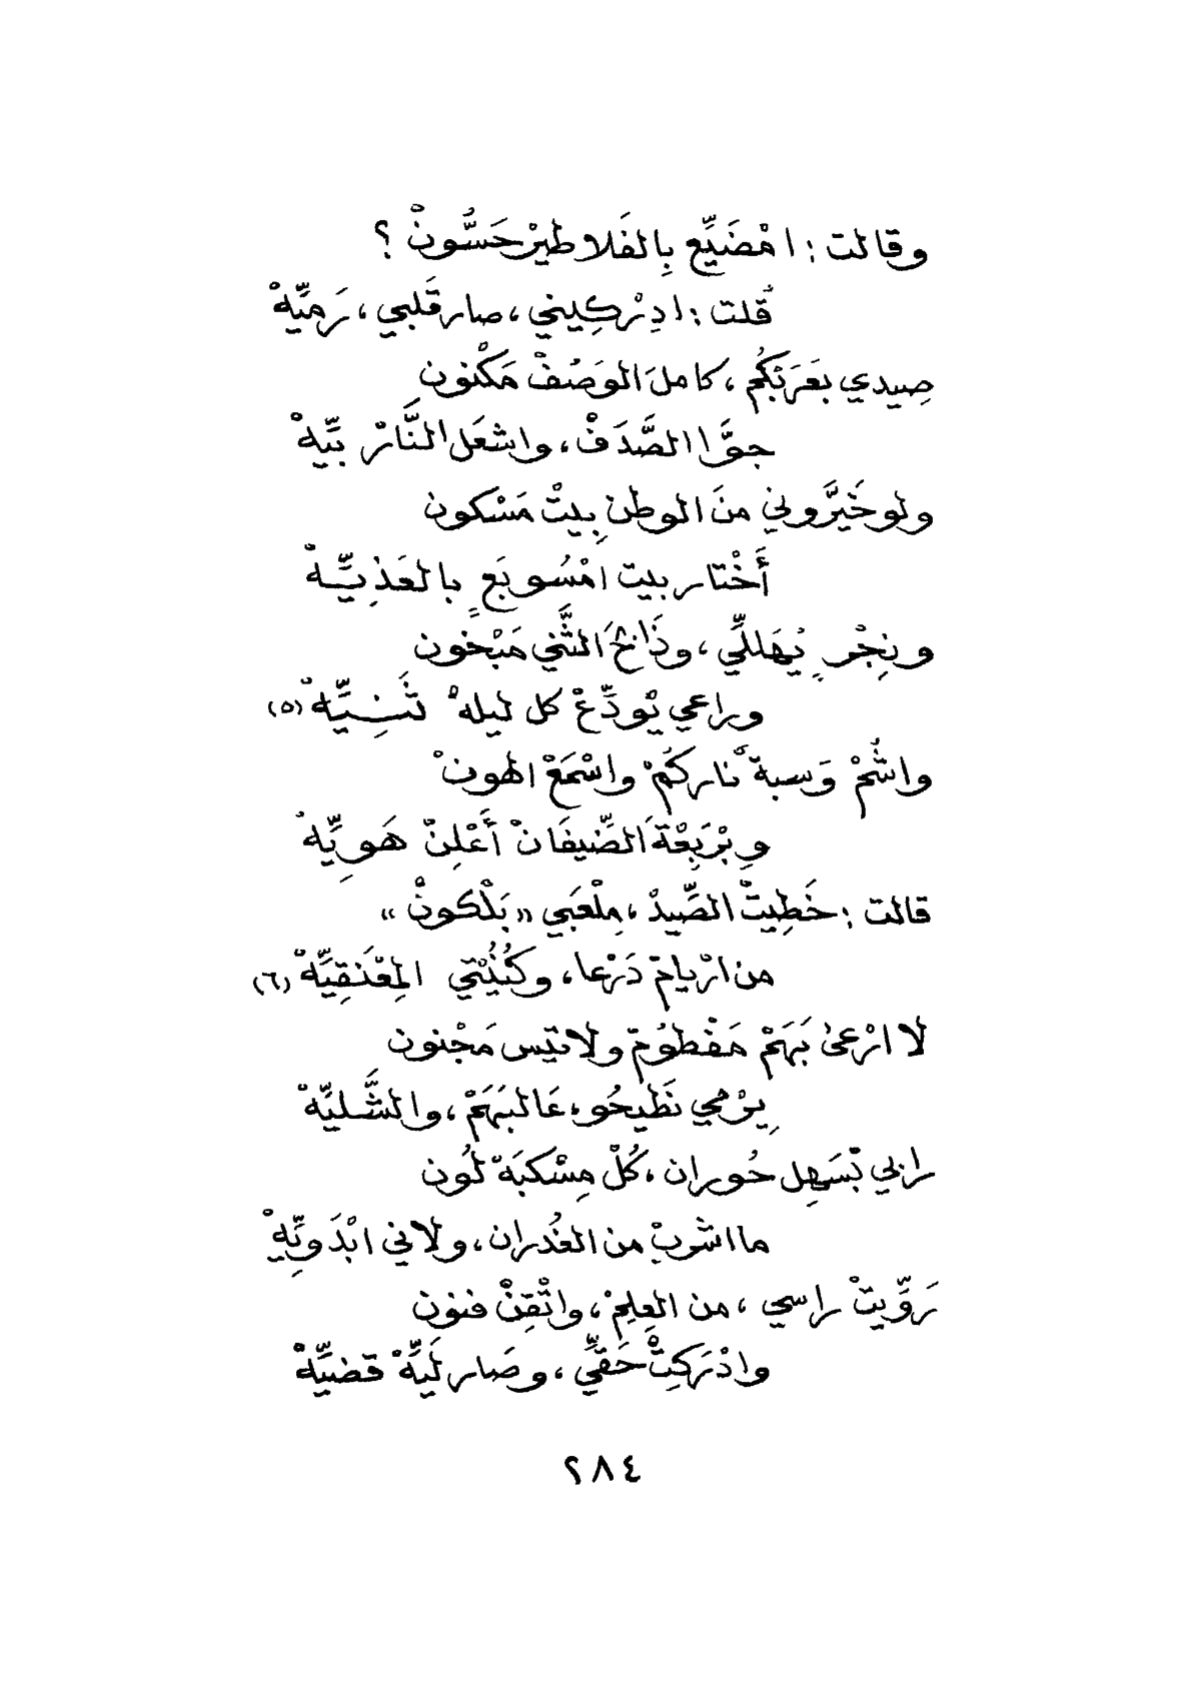 وقالت : امْضَيِّع بِالفَلا طيرْ حَسُّونْ ؟
قُلت : ادِرْكِيني ، صار قَلبي ، رَميِّهْ
صِيدي بعَرَبْكُم ، كاملَ الوَصُفْ مَكْنون
جوَّا الصَّدَفْ ، واشعَل النَّارْ بيِّهْ
ولو خَيَّروني منَ الوطن بِيتْ مَسْكون
أَخْتار بيت امْسُوبَعٍ بالعَذِيِّهْ
ونِجْرٍ يْهَللِّي ، وذَانِخَ الثَّني مَبْخون
وراعي يْودِّعْ كل ليلهْ ثَنِيِّهْ (٥)
واشُمْ وَسبةْ ناركُمْ واسْمَعْ الهونْ
وِبْرَبِعْةَ الضِّيفَانْ أَعْلِنْ هَوِيِّهْ
قالت : خَطِيتْ الصِّيدْ ، مِلْعَبي « بَلْكونْ »
من ارْيامْ دَرْعا ، وكُنْيْتي المِعْنَقِيِّهْ (٦)
لا ارْعىٰ بَهَمْ مَفْطُومْ ولا تيس مَجْنون
يِرْمي نَطْيحُوه عَالبَهَمْ ، والشَّليِّهْ
رابي بْسَهِل حُوران ، كُلْ مِسْكبَهْ لُون
ما اشربْ من الغُدران ، ولاني ابْدَوِيِّهْ
رَوِّيتْ راسي ، من العِلِمْ ، واتْقِنْ فنون
وادْرَكِتْ حَقِّي ، وصَار لَيِّهْ قضيِّهْ
٢٨٤